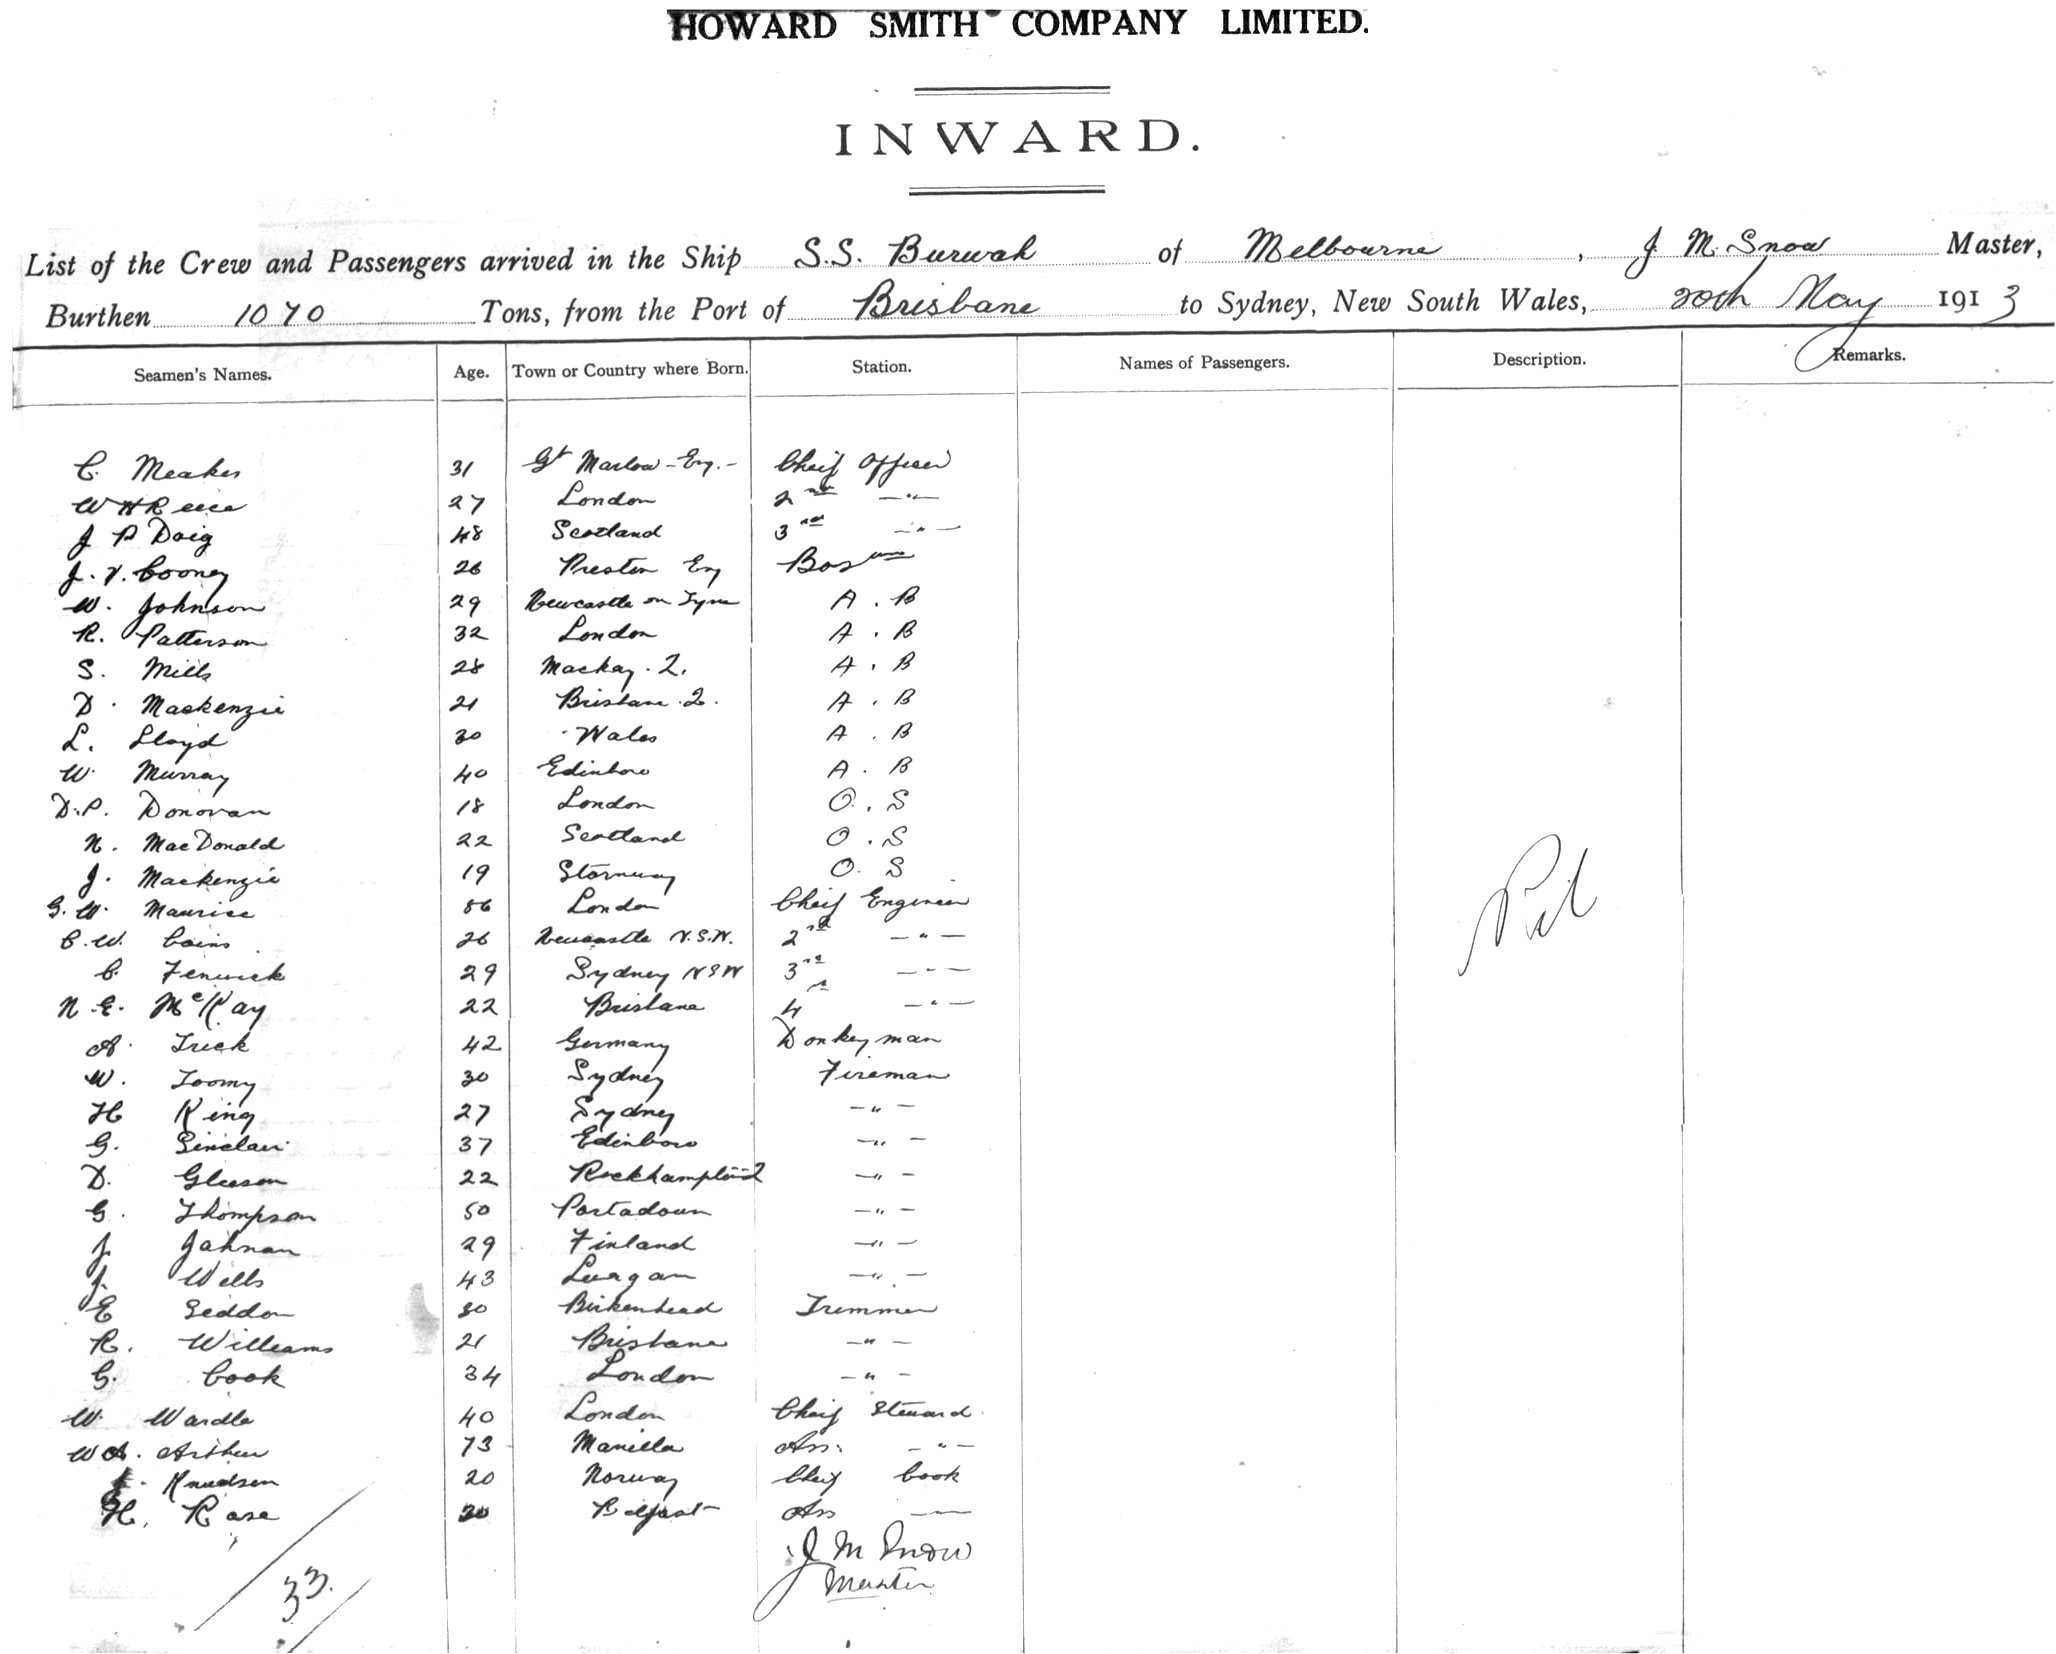 HOWARD SMITH COMPANY LIMITED.
INWARD.
List of the Crew and Passengers arrived in the Ship S.S. Burwah of Melbourne, J. M. Snow Master,
Burthen 1070 Tons, from the Port of Brisbane to Sydney, New South Wales, 20th May 1913
Seamen's Names. Age. Town or Country where Born. Station. Names of Passengers. Description. Remarks.
C. Meaker 31 Gt Marlow - Eng. - Cheif Officer
W H Reece 27 London 2nd -"-
J P Doig 48 Scotland 3rd -"-
J. V. Cooney 26 Preston Eng Bosun
W. Johnson 29 Newcastle on Tyne A. B
R. Patterson 32 London A. B
S. Mills 28 Mackay. Q. A. B
D. Mackenzie 21 Brisbane. Q. A. B
L. Lloyd 30 Wales A. B
W. Murray 40 Edinboro A. B
D.P. Donovan 18 London O. S
N. MacDonald 22 Scotland O. S
J. Mackenzie 19 Stornway O. S
G. W. Maurice 56 London Cheif Engineer
C. W. Cains 26 Newcastle N.S.W. 2nd -"-
C. Fenwick 29 Sydney NSW 3rd -"-
N. E. McKay 22 Brisbane 4th -"-
A. Trick 42 Germany Donkeyman
W. Toomy 30 Sydney Fireman
H King 27 Sydney -"-
G. Sinclair 37 Edinboro -"-
D. Gleeson 22 Rockhampton Q -"-
G. Thompson 50 Portadown -"-
J. Jahnan 29 Finland -"-
J. Wells 43 Lurgan -"-
E Seddon 30 Birkenhead Trimmer
R. Williams 21 Brisbane -"-
G. Cook 34 London -"-
W. Wardle 40 London Cheif Steward.
W A. Arthur 73 Manilla Ass. -"-
J. Knudsen 20 Norway Cheif Cook
H. Rose 30 Belfast Ass —
33.
J M Snow
Master